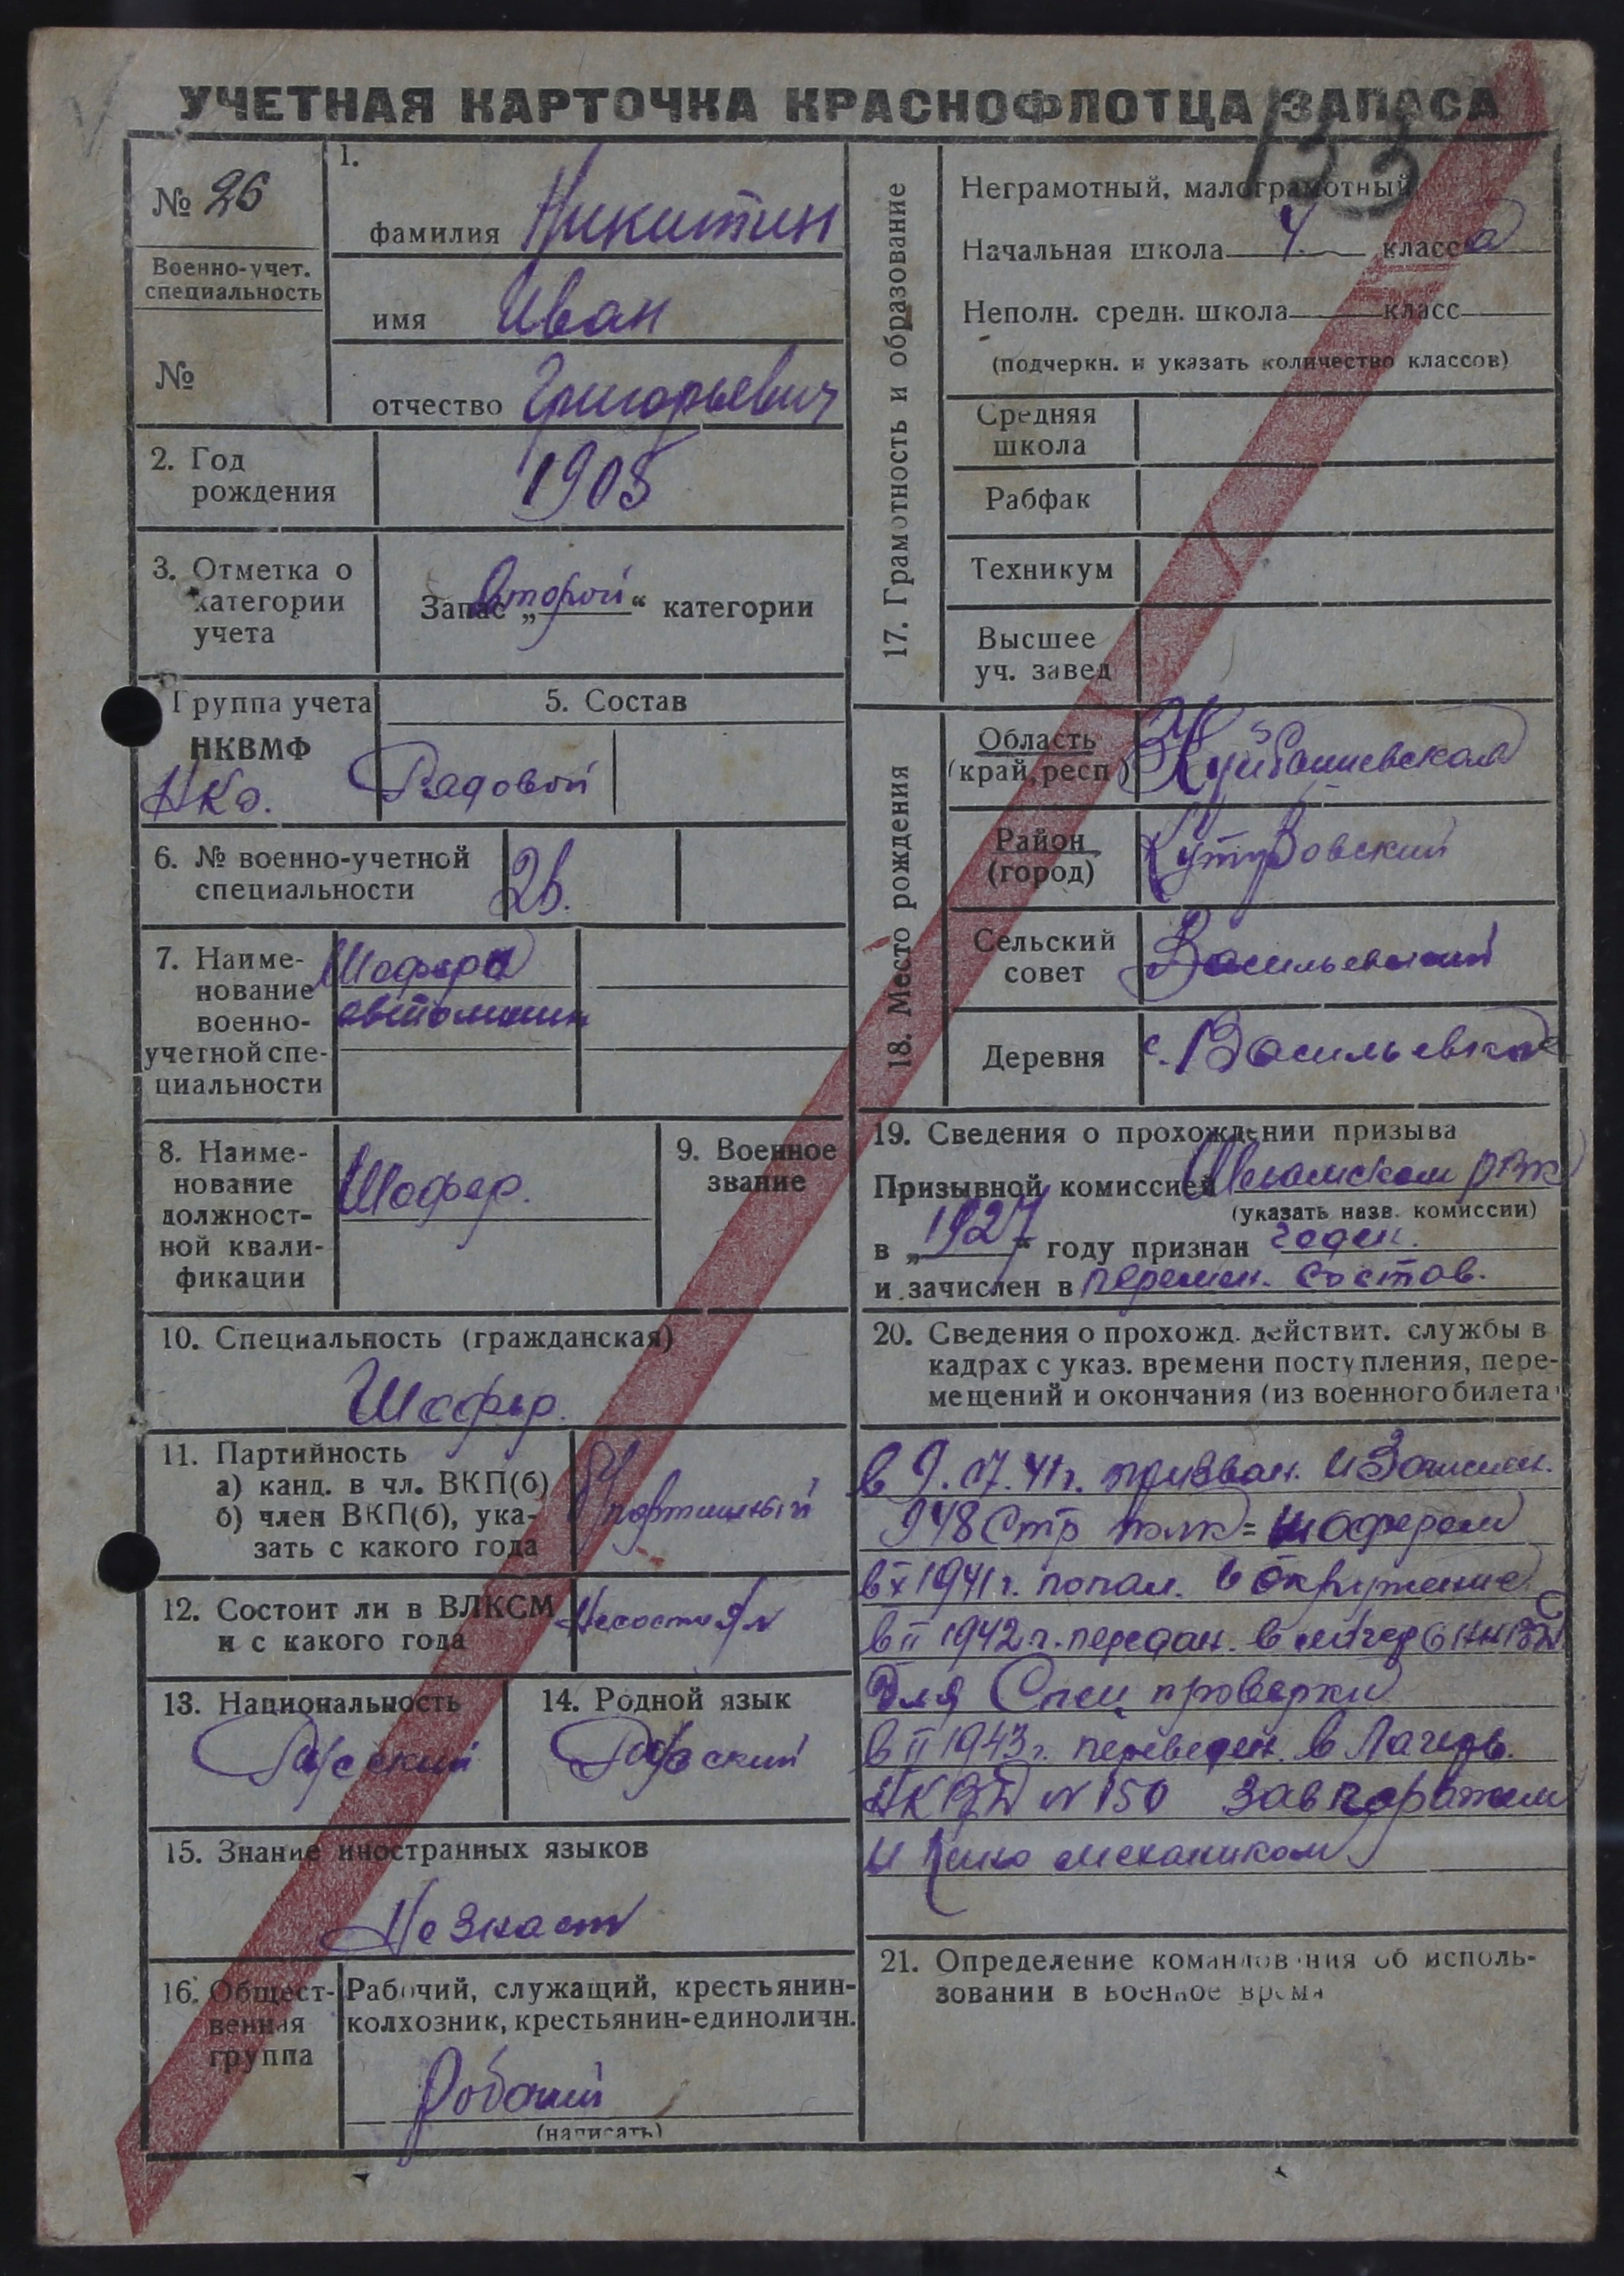 УЧЕТНАЯ КАРТОЧКА КРАСНОФЛОТЦА ЗАПАСА
133
№ 26
Военно-учет.
специальность
№
1.
фамилия Никитин
имя Иван
отчество Григорьевич
2. Год
рождения
1905
3. Отметка о
категории
учета
Запас „Второй“ категории
Группа учета
НКВМФ
НКО.
5. Состав
Рядовой
6. № военно-учетной
специальности
26.
7. Наиме-
нование
военно-
учетной спе-
циальности
Шофера
автомашин
8. Наиме-
нование
должност-
ной квали-
фикации
Шофер.
9. Военное
звание
10. Специальность (гражданская)
Шофер.
11. Партийность
а) канд. в чл. ВКП(б)
б) член ВКП(б), ука-
зать с какого года
Б/партийный
12. Состоит ли в ВЛКСМ
и с какого года
Несостоял
13. Национальность
Русский
14. Родной язык
Русский
15. Знание иностранных языков
Не знает
16. Общест-
венная
группа
Рабочий, служащий, крестьянин-
колхозник, крестьянин-единоличн.
Рабочий
(написать)
17. Грамотность и образование
Неграмотный, малограмотный
Начальная школа 4 класса
Неполн. средн. школа класс
(подчеркн. и указать количество классов)
Средняя
школа
Рабфак
Техникум
Высшее
уч. завед
18. Место рождения
Область
(край, респ)
Куйбышевская
Район
(город)
Кутузовский
Сельский
совет
Васильевский
Деревня
с. Васильевка
19. Сведения о прохождении призыва
Призывной комиссией РВК
(указать назв. комиссии)
в „1927“ году признан годен.
и зачислен в перемен. состав.
20. Сведения о прохожд. действит. службы в
кадрах с указ. времени поступления, пере-
мещений и окончания (из военного билета
в 9.07.41г. призван. и Зачислен.
948 Стр полк = шофером
в X 1941г. попал. в окружение
в II 1942г. передан. в лагерь НКВД
для Спец проверки
в II 1943г. переведен. в Лагерь.
НКВД N 150 Зав гаражем
и Кино механиком
21. Определение командования об исполь-
зовании в военное время